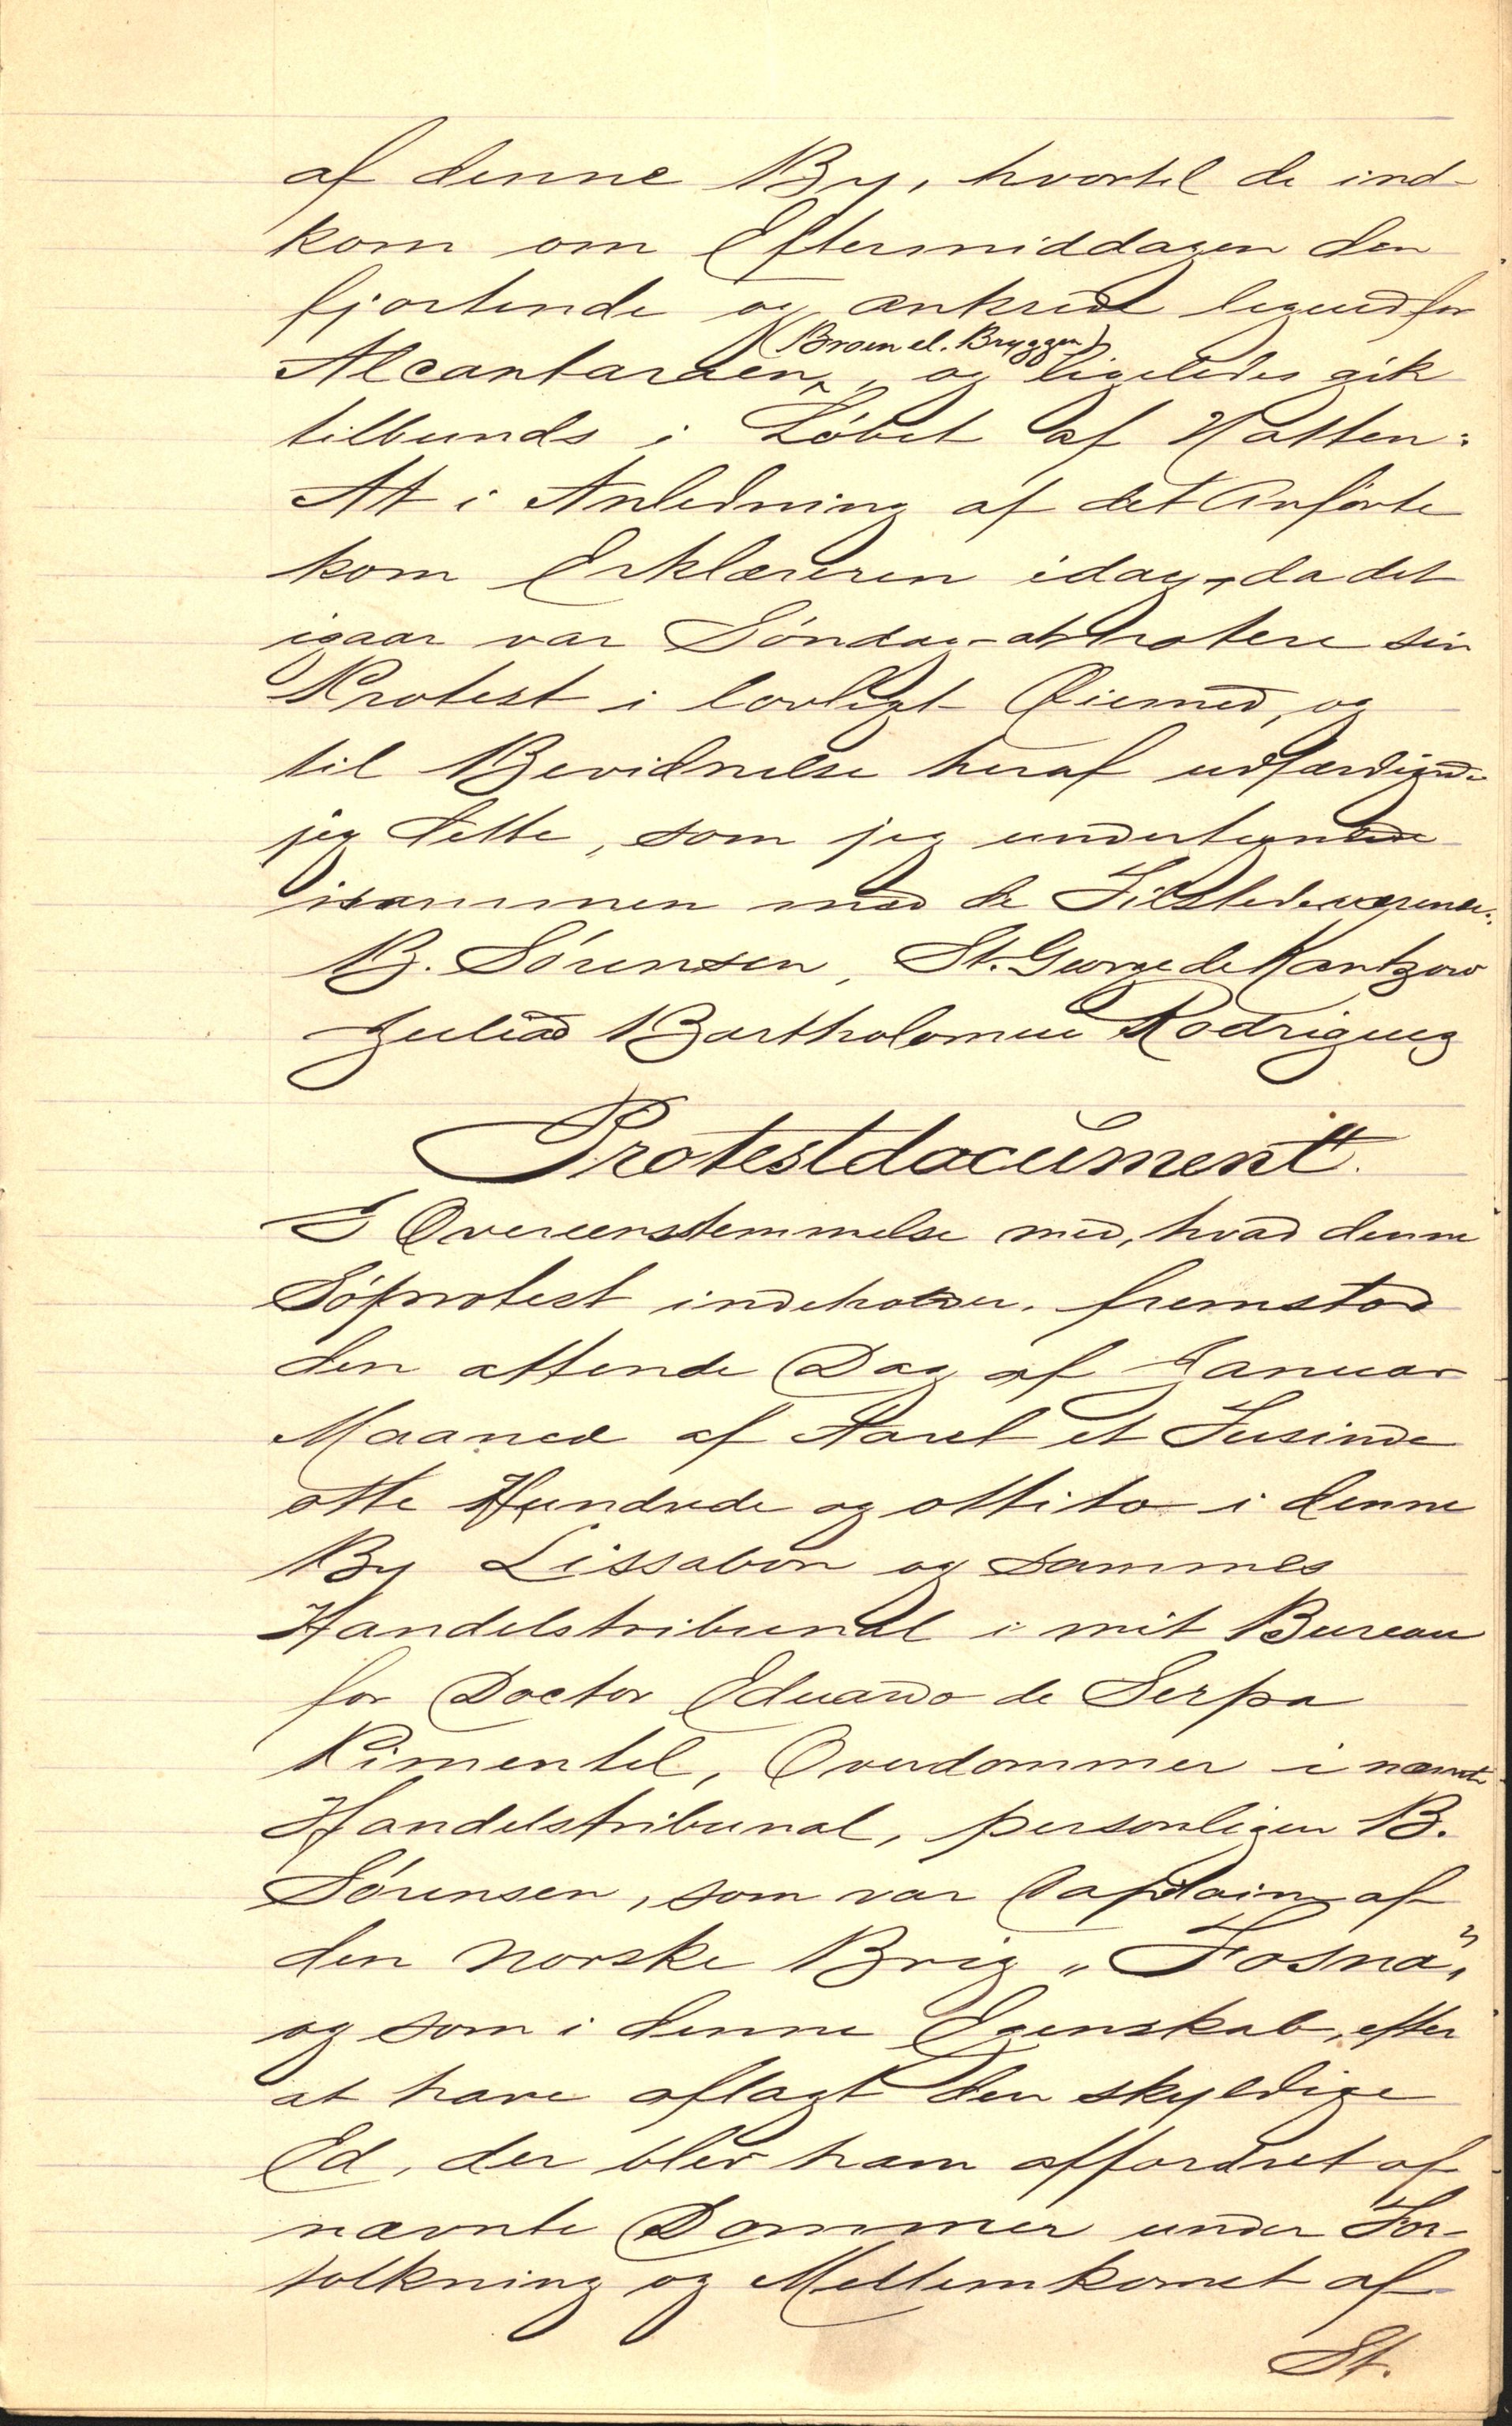 af denne By, hvortil de ind-
kom om Eftermiddagen den
fjortende og ankred ligeud for
(Broen el. Bryggen)
Alcantaraen, og ligeledes gik
tilbunds i Løbet af Natten:
At i Anledning af det Anførte
kom Erklæreren idag, da det
igaar var Søndag - at notere sin
Protest i lovligt Øiemed, og
til Bevidnelse heraf udfærdigede
jeg dette, som jeg undertegnede
isammen med de Tilstedeværende:
B. Sørensen, St. George de Kantzow
Juliaõ Bartholomeu Rodriguez
Protestdocument.
I Overeensstemmelse med, hvad denne
Søprotest indeholder, fremstod
den attende Dag af Januar
Maaned af Aaret et Tusinde
otte Hundrede og ottito i denne
By Lissabon og sammes
Handelstribunal i mit Bureau
for Doctor Eduardo de Serpa
Pimentel, Overdommer i nævnte
Handelstribunal, personligen B.
Sørensen, som var Captain af
den norske Brig „Fosna",
og som i denne Egenskab, efter
at have aflagt den skyldige
Ed, der blev ham affordret af
nævnte Dommer under For-
tolkning og Mellemkomst af
St.